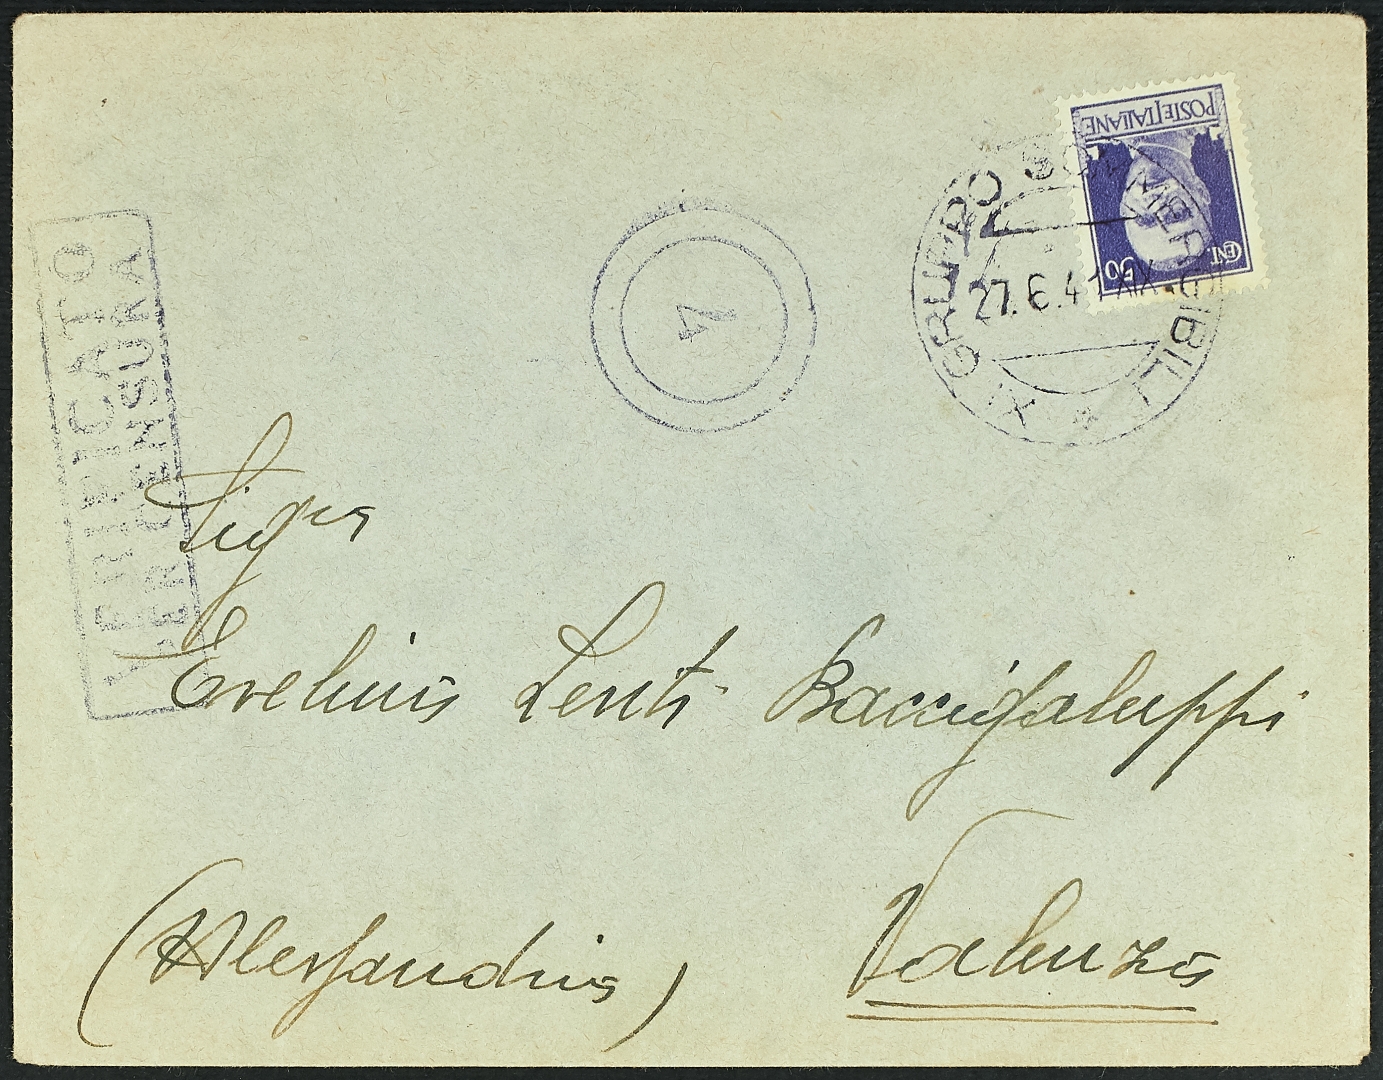 POSTE ITALIANE
CENT. 50
XI GRUPPO SOMMERGIBILI
27.6.41 XIX
4
VERIFICATO
PER CENSURA
Sigra
Evelina Lenti Baccigaluppi
Valenza
(Alessandria)